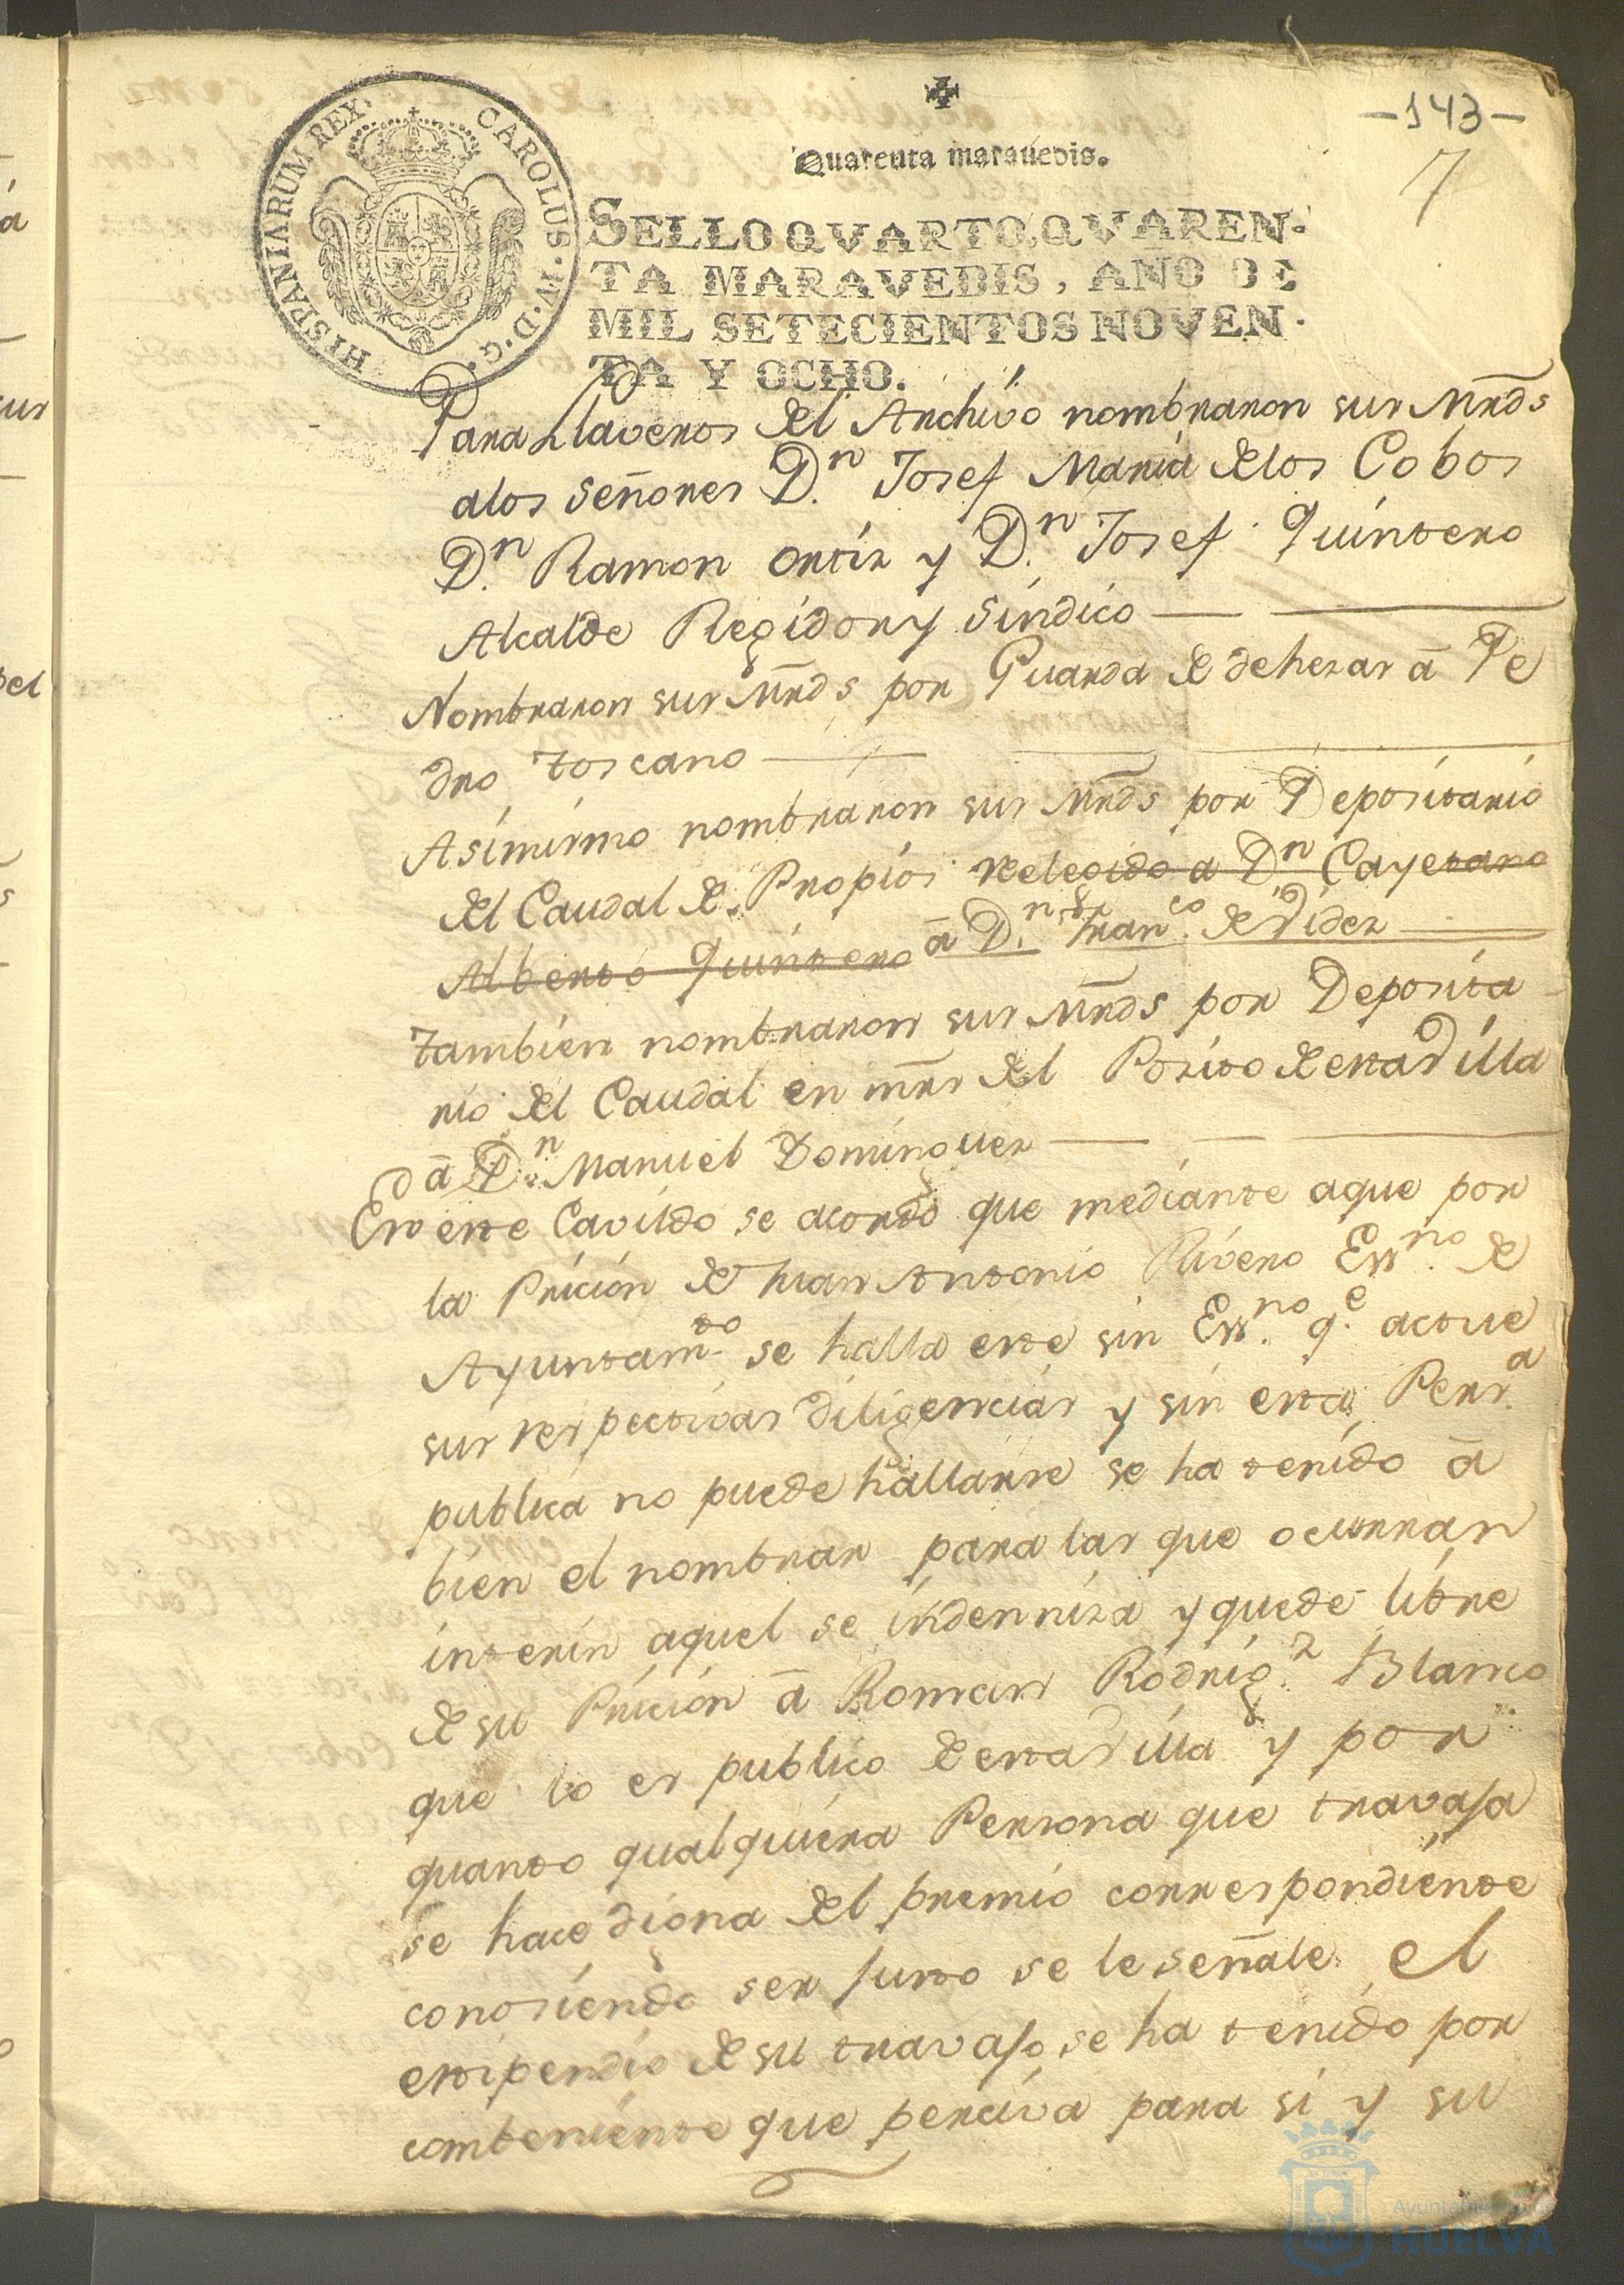 -143-
7
Quarenta maravedis.
HISPANIARUM REX. CAROLUS. IV. D. G.
SELLO QVARTO, QVAREN-
TA MARAVEDIS, AÑO DE
MIL SETECIENTOS NOVEN-
TA Y OCHO.
Para Llaveros del Archivo nombraron sus Mrds
alos señores D.n Josef Maria delos Cobos
D.n Ramon Ortiz y D.n Josef Quintero
Alcalde Regidor y Sindico
Nombraron sus Mrds por Guarda de dehezas â Pe
dro Toscano
Asimismo nombraron sus Mrds por Depositario
del Caudal de Propios relegido a Dn Cayetano
Alberto Quintero â D.n Fran.co de Videz
Tambien nombraron sus Mrds por Deposita
rio del Caudal en mrs del Posito de esta Villa
â D.n Manuel Dominguez
En este Cavildo se acordo que mediante aque por
la Pricion de Juan Antonio Rivero Ess.no de
Ayuntam.to se halla este sin Ess.no q.e actue
sus respectivas diligencias y sin esta Pers.a
publica no puede hallarse se ha tenido â
bien el nombrar para las que ocurran
interin aquel se indenniza y quede libre
de su Pricion â Roman Rodrig.z Blanco
que lo es publico de esta Villa y por
quanto qualquiera Persona que travaja
se hace digna del premio correspondiente
conosiendo ser justo se le señale el
estipendio de su travajo, se ha tenido por
combeniente que perciva para si y su
Ayuntamiento de
HUELVA